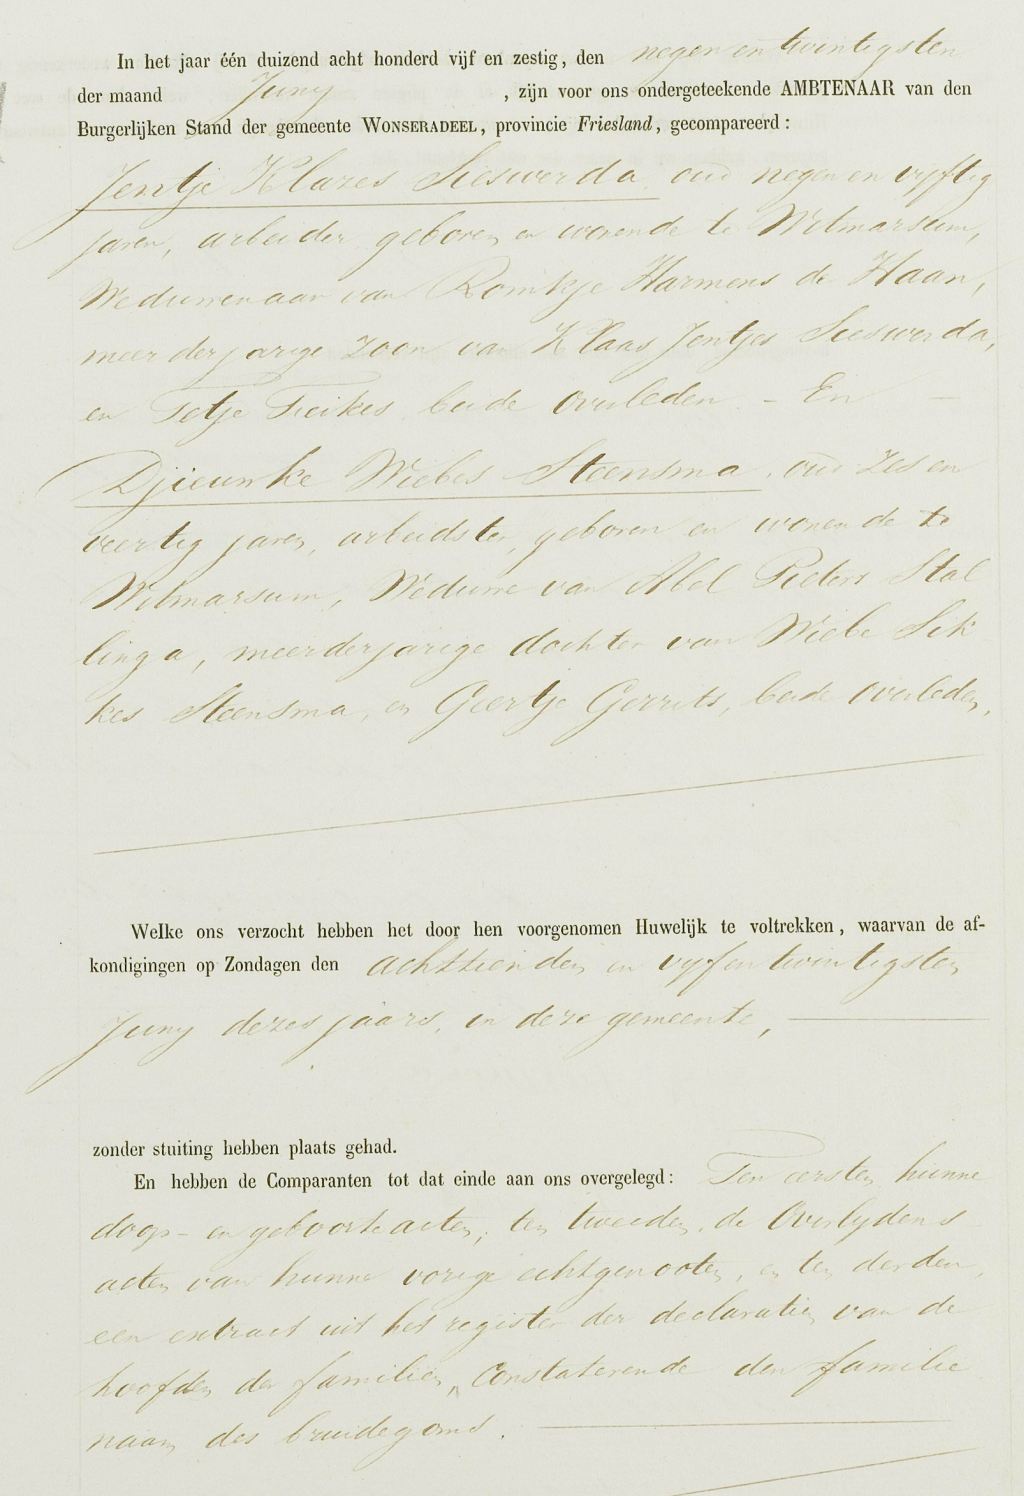 In het jaar één duizend acht honderd vijf en zestig, den negen en twintigsten
der maand Juny , zijn voor ons ondergeteekende AMBTENAAR van den
Burgerlijken Stand der gemeente WONSERADEEL, provincie Friesland, gecompareerd:
Jentje Klazes Sieswerda, oud negen en vyftig
jaren, arbeider geboren en wonende te Witmarsum,
Weduwenaar van Romkje Harmens de Haan,
meerderjarige zoon van Klaas Jentjes Sieswerda,
en Tetje Feikes beide overleden – En –
Djieuwke Wiebes Steensma, oud zes en
veertig jaren, arbeidster, geboren en wonende te
Witmarsum, Weduwe van Abel Pieters Stal
linga, meerderjarige dochter van Wiebe Sik
kes Steensma, en Geertje Gerrits, beide overleden,
Welke ons verzocht hebben het door hen voorgenomen Huwelijk te voltrekken, waarvan de af-
kondigingen op Zondagen den achttienden en vyf en twintigsten
Juny dezes jaars, in deze gemeente,
zonder stuiting hebben plaats gehad.
En hebben de Comparanten tot dat einde aan ons overgelegd: Ten eersten hunne
doop- en geboorteacten, ten tweeden, de Overlydens
acten van hunne vorige echtgenooten, en ten derden,
een extract uit het register der declaratien van de
hoofden der familien, constaterende den familie
naam des bruidegoms.